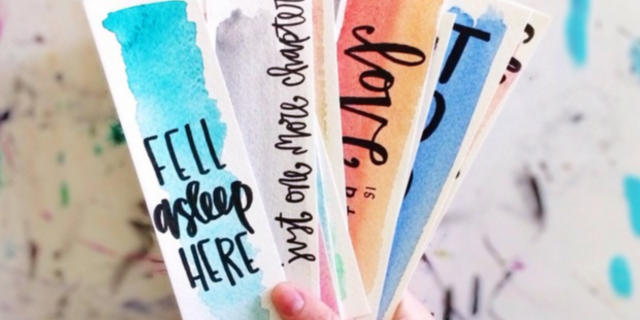 FELL
asleep
HERE
just one more chapter
love
IS
TO